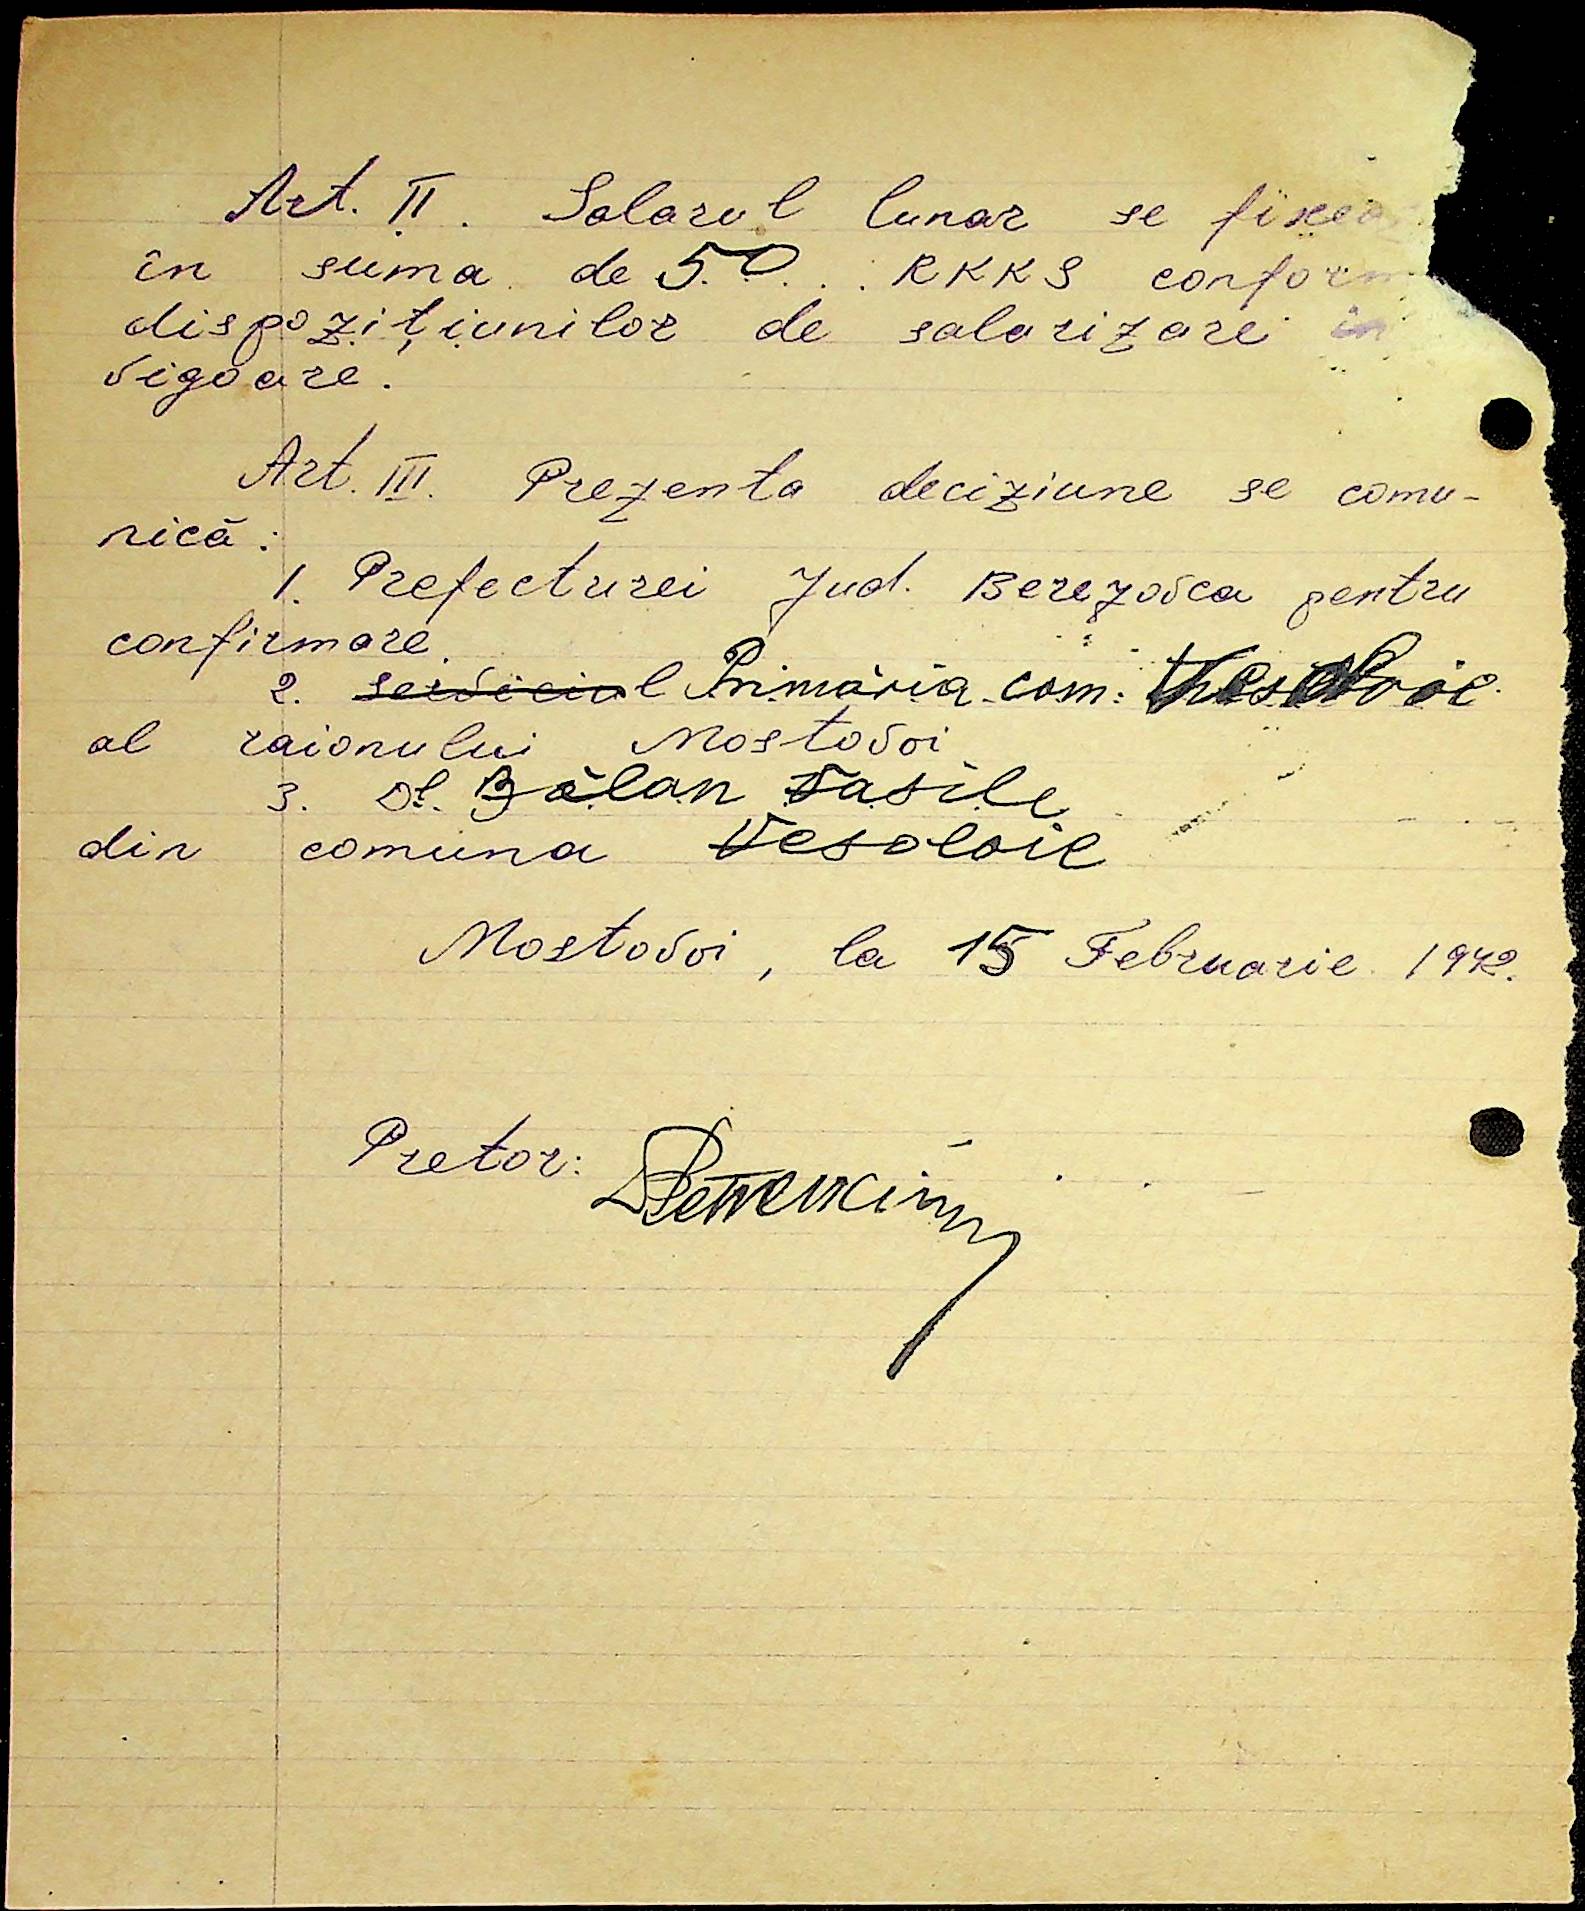 Art. II. Salarul lunar se fixea
în suma de 50 RKKS conform
dispozițiunilor de salarizare în
vigoare.
Art. III. Prezenta deciziune se comu-
nică:
1. Prefecturei Jud. Berezovca pentru
confirmare.
2. serviciul Primăria com. Vesoloie
al raionului Mostovoi
3. Dl. Bălan Vasile
din comuna Vesoloie
Mostovoi, la 15 Februarie 1942.
Pretor: